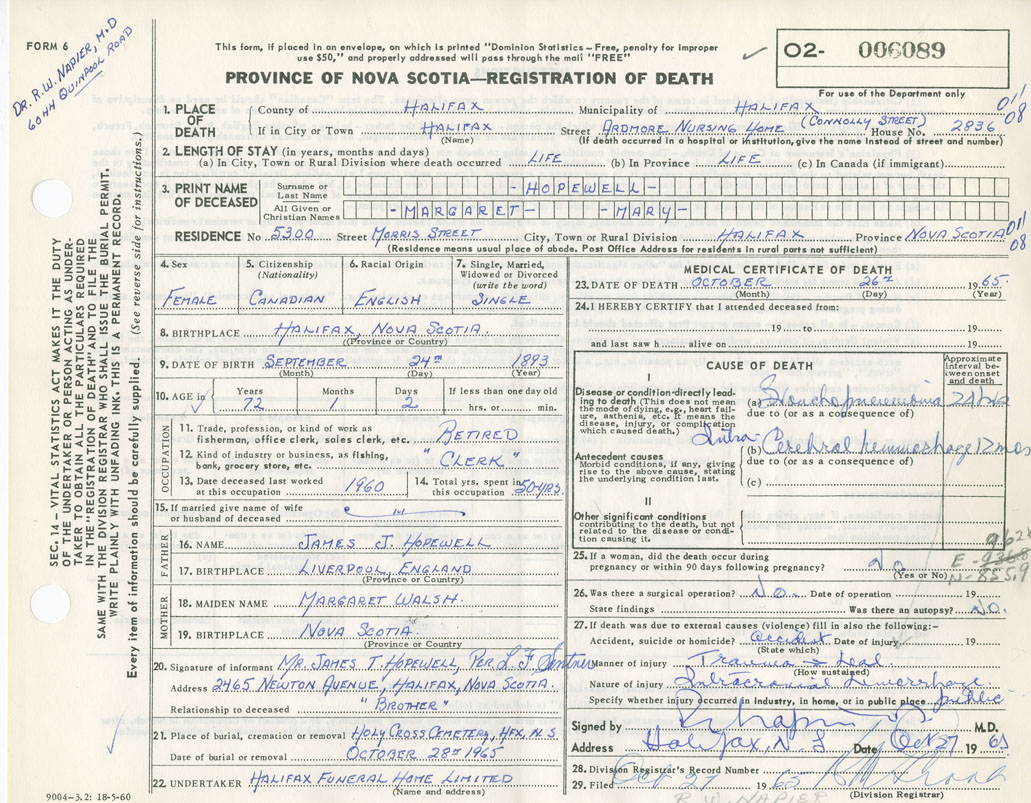 FORM 6
DR. R.W. NAPIER, M.D
6044 QUINPOOL ROAD
This form, if placed in an envelope, on which is printed "Dominion Statistics – Free, penalty for improper
use $50," and properly addressed will pass through the mail "FREE"
PROVINCE OF NOVA SCOTIA—REGISTRATION OF DEATH
O2- 006089
For use of the Department only
011
08
1. PLACE OF DEATH County of HALIFAX Municipality of HALIFAX
If in City or Town HALIFAX Street ARDMORE NURSING HOME (CONNOLLY STREET) House No. 2836
(Name) (If death occurred in a hospital or institution, give the name instead of street and number)
2. LENGTH OF STAY (in years, months and days)
(a) In City, Town or Rural Division where death occurred LIFE (b) In Province LIFE (c) In Canada (if immigrant)
3. PRINT NAME OF DECEASED Surname or Last Name -HOPEWELL-
All Given or Christian Names -MARGARET- -MARY-
011
08
RESIDENCE No 5300 Street MORRIS STREET City, Town or Rural Division HALIFAX Province NOVA SCOTIA
(Residence means usual place of abode. Post Office Address for residents in rural parts not sufficient)
SEC. 14 – VITAL STATISTICS ACT MAKES IT THE DUTY
OF THE UNDERTAKER OR PERSON ACTING AS UNDER-
TAKER TO OBTAIN ALL THE PARTICULARS REQUIRED
IN THE "REGISTRATION OF DEATH" AND TO FILE THE
SAME WITH THE DIVISION REGISTRAR WHO SHALL ISSUE THE BURIAL PERMIT.
WRITE PLAINLY WITH UNFADING INK. THIS IS A PERMANENT RECORD.
Every item of information should be carefully supplied. (See reverse side for instructions.)
4. Sex FEMALE
5. Citizenship (Nationality) CANADIAN
6. Racial Origin ENGLISH
7. Single, Married, Widowed or Divorced (write the word) SINGLE
8. BIRTHPLACE HALIFAX, NOVA SCOTIA
(Province or Country)
9. DATE OF BIRTH SEPTEMBER 24TH 1893
(Month) (Day) (Year)
10. AGE in Years 72 Months 1 Days 2 If less than one day old hrs. or min.
OCCUPATION
11. Trade, profession or kind of work as
fisherman, office clerk, sales clerk, etc. RETIRED
12. Kind of industry or business, as fishing,
bank, grocery store, etc. "CLERK"
13. Date deceased last worked at this occupation 1960
14. Total yrs. spent in this occupation 50YRS.
15. If married give name of wife
or husband of deceased
FATHER
16. NAME JAMES J. HOPEWELL
17. BIRTHPLACE LIVERPOOL, ENGLAND
(Province or Country)
MOTHER
18. MAIDEN NAME MARGARET WALSH.
19. BIRTHPLACE NOVA SCOTIA.
(Province or Country)
20. Signature of informant MR. JAMES T. HOPEWELL, PER L. F.
Address 2465 NEWTON AVENUE, HALIFAX, NOVA SCOTIA.
Relationship to deceased "BROTHER"
21. Place of burial, cremation or removal HOLY CROSS CEMETERY, HFX, N.S
Date of burial or removal OCTOBER 28TH 1965
22. UNDERTAKER HALIFAX FUNERAL HOME LIMITED
(Name and address)
9004–3.2: 18-5-60
MEDICAL CERTIFICATE OF DEATH
23. DATE OF DEATH OCTOBER 26TH 1965.
(Month) (Day) (Year)
24. I HEREBY CERTIFY that I attended deceased from:
19 to 19
and last saw h alive on 19
CAUSE OF DEATH
Approximate interval between onset and death
I
Disease or condition directly leading to death (This does not mean the mode of dying, e.g., heart failure, asthenia, etc. It means the disease, injury, or complication which caused death.)
(a) Bronchopneumonia
due to (or as a consequence of)
Antecedent causes
Morbid conditions, if any, giving rise to the above cause, stating the underlying condition last.
(b) Intra-Cerebral hemorrhage 12 mos
due to (or as a consequence of)
(c)
II
Other significant conditions
contributing to the death, but not related to the disease or condition causing it.
25. If a woman, did the death occur during
pregnancy or within 90 days following pregnancy? No.
(Yes or No)
E-9368
N-855.9
26. Was there a surgical operation? No. Date of operation 19
State findings Was there an autopsy? NO.
27. If death was due to external causes (violence) fill in also the following:–
Accident, suicide or homicide? accident Date of injury 19
(State which)
Manner of injury Trauma to head.
(How sustained)
Nature of injury Intracranial hemorrhage.
Specify whether injury occurred in industry, in home, or in public place public
Signed by M.D.
Address Halifax, N.S Date Oct 27 1965
28. Division Registrar's Record Number
29. Filed Oct 27 1965
(Division Registrar)
R.W. NAPIER